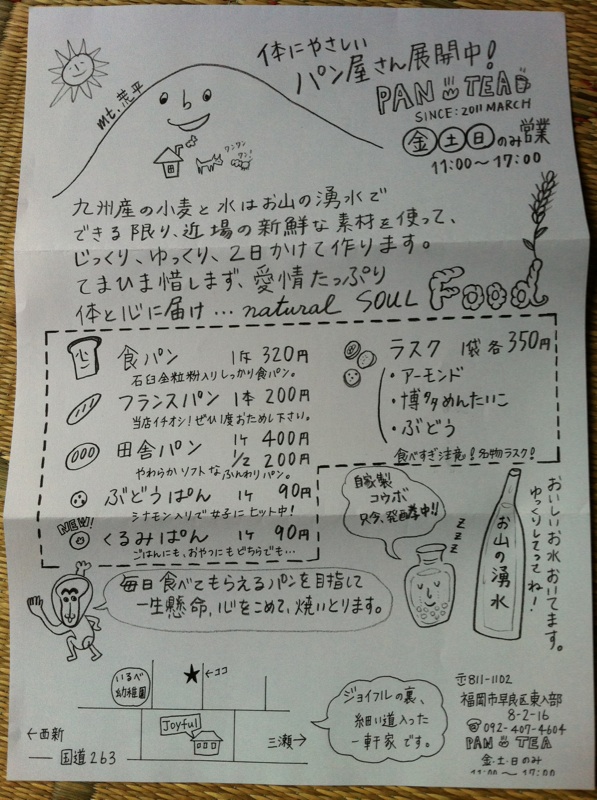 体にやさしい
パン屋さん展開中!
PAN TEA
SINCE:2011 MARCH
金土日のみ営業
11:00〜17:00
mt.荒平
ワンワン
ワン!
九州産の小麦と水はお山の湧水で
できる限り、近場の新鮮な素材を使って、
じっくり、ゆっくり、2日かけて作ります。
てまひま惜しまず、愛情たっぷり
体と心に届け…natural SOUL Food
食パン 1斤 320円
石臼全粒粉入りしっかり食パン。
フランスパン 1本 200円
当店イチオシ!ぜひ1度おためし下さい。
田舎パン 1ケ 400円
1/2 200円
やわらかソフトなふんわりパン。
ぶどうぱん 1ケ 90円
シナモン入りで女子にヒット中!
NEW!
くるみぱん 1ケ 90円
ごはんにも、おやつにもどちらでも…
ラスク 1袋 各350円
・アーモンド
・博多めんたいこ
・ぶどう
食べすぎ注意!名物ラスク!
自家製
コウボ
只今、発酵中!!
z z z
お山の湧水
おいしいお水おいてます。
ゆっくりしてってね!
毎日食べてもらえるパンを目指して
一生懸命、心をこめて、焼いとります。
いるべ
幼稚園
←ココ
Joyful
←西新
三瀬→
国道263
ジョイフルの裏、
細い道入った
一軒家です。
〒811-1102
福岡市早良区東入部
8-2-16
☎092-407-4604
PAN TEA
金・土・日のみ
11:00〜17:00